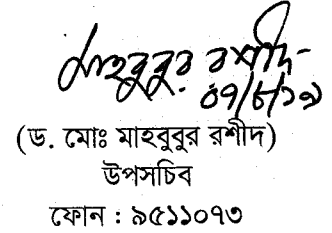 মাহবুবুর রশীদ
০৭/৮/১৯
(ড. মোঃ মাহবুবুর রশীদ)
উপসচিব
ফোন : ৯৫১১০৭৩